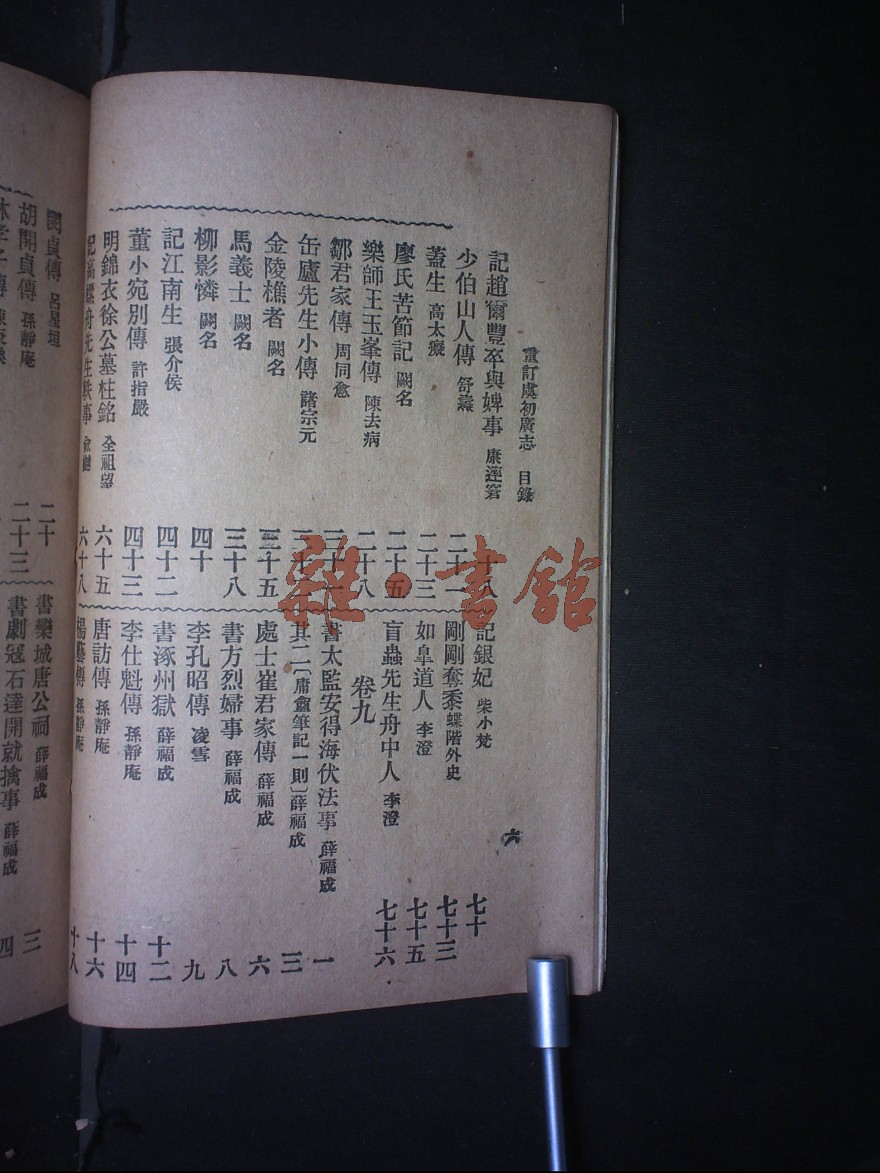 重訂虞初廣志 目錄
六
記趙爾豐卒與婢事 康逕窘
少伯山人傳 舒燾 二十一
蓋生 高太癡 二十三
廖氏苦節記 闕名 二十五
樂師王玉峯傳 陳去病 二十八
鄒君家傳 周同愈
缶廬先生小傳 諸宗元
金陵樵者 闕名 三十五
馬義士 闕名 三十八
柳影憐 闕名 四十
記江南生 張介侯 四十二
董小宛別傳 許指嚴 四十三
明錦衣徐公墓柱銘 全祖望 六十五
先生軼事 六十八
記銀妃 柴小梵 七十
剛剛奪黍 蝶階外史 七十三
如皐道人 李澄 七十五
盲蟲先生舟中人 李澄 七十六
卷九
書太監安得海伏法事 薛福成 一
其二〔庸盦筆記一則〕薛福成 三
處士崔君家傳 薛福成 六
書方烈婦事 薛福成 八
李孔昭傳 凌雪 九
書涿州獄 薛福成 十二
李仕魁傳 孫靜庵 十四
唐訪傳 孫靜庵 十六
楊藝傳 孫靜庵 十八
閔貞傳 呂星垣 二十
胡開貞傳 孫靜庵 二十三
書欒城唐公祠 薛福成 三
書劇寇石達開就擒事 薛福成 四
雜·書館